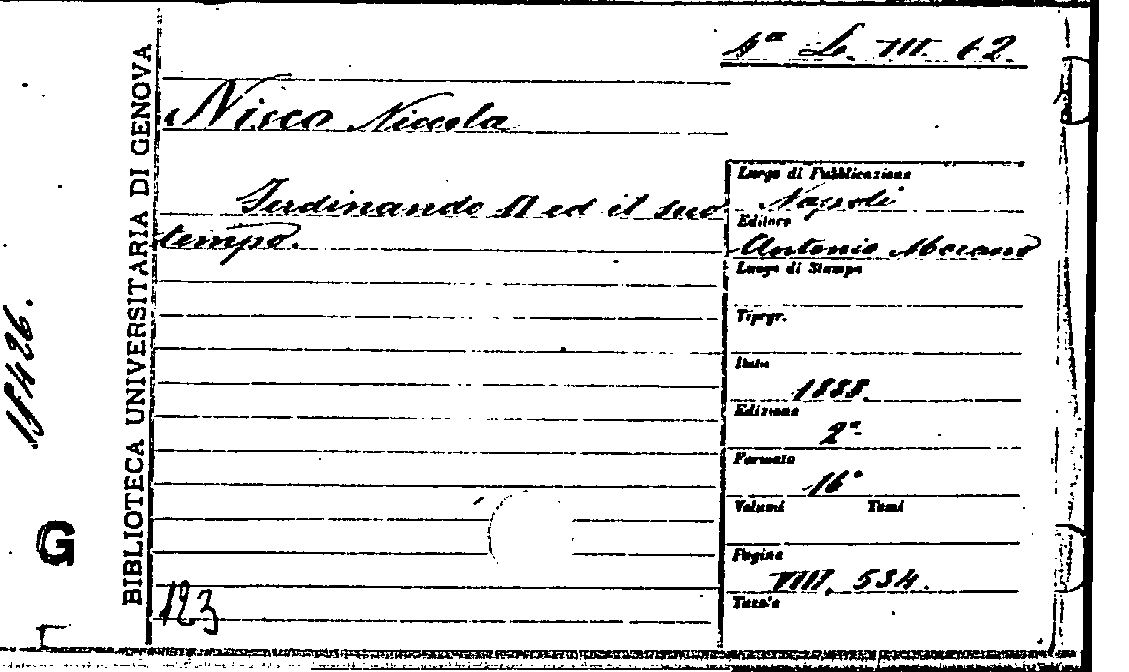 4ª L. III. 62.
Nisco Niccola
Ferdinando II ed il suo
tempo.
Luogo di Pubblicazione
Napoli
Editore
Antonio Morano
Luogo di Stampa
Tipogr.
Data
1888.
Edizione
2ª
Formato
16°
Volumi Tomi
Pagine
VIII, 534.
Tavole
BIBLIOTECA UNIVERSITARIA DI GENOVA
15426.
G
123